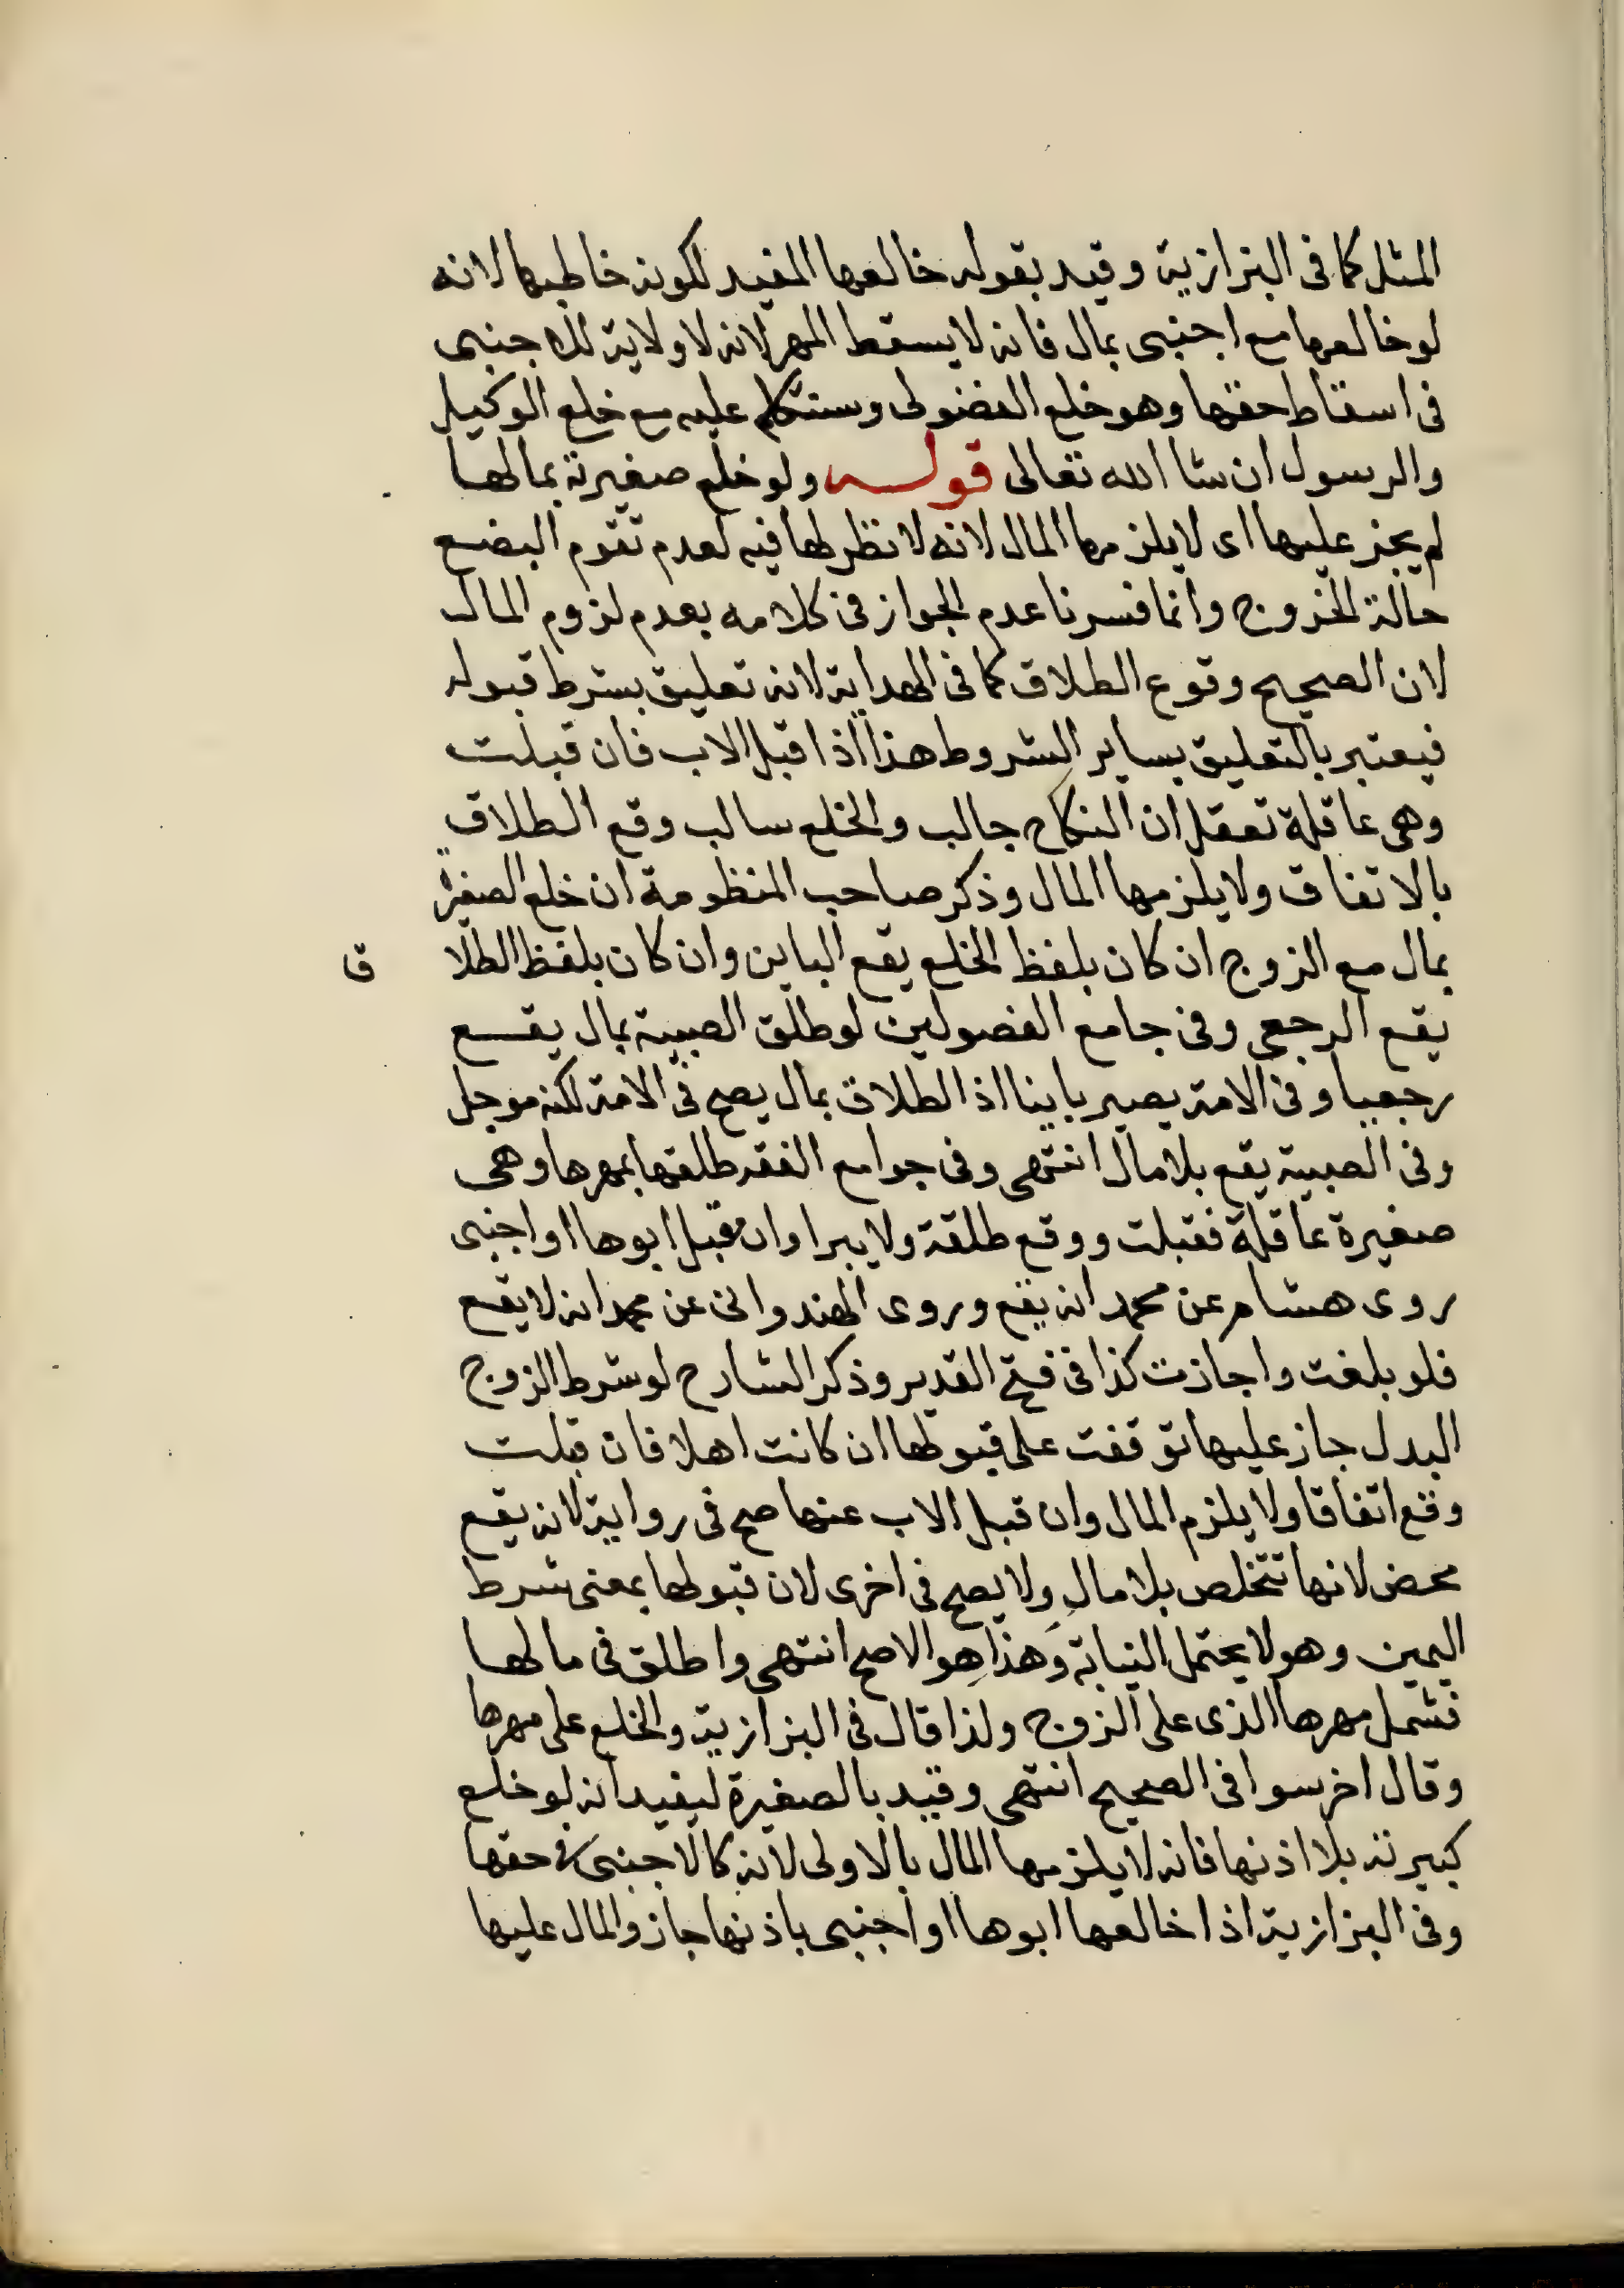 المثل كما فى البزازية وقيد بقوله خالعها المفيد لكونه خاطبها لانه
لو خالعها مع اجنبى بمال فانه لا يسقط المهر لانه لا ولاية للاجنبى
فى اسقاط حقها وهو خلع الفضولى وسنتكلم عليه مع خلع الوكيل
والرسول ان شا الله تعالى قوله ولو خلع صغيرته بمالها
لم يجز عليها اى لا يلزمها المال لانه لا نظر لها فيه لعدم تقوم البضع
حالة الخروج وانما فسرنا عدم الجواز فى كلامه بعدم لزوم المال
لان الصحيح وقوع الطلاق كما فى الهداية لانه تعليق بشرط قبوله
فيعتبر بالتعليق بساير الشروط هذا اذا قبل الاب فان قبلت
وهى عاقلة تعقل ان النكاح جالب والخلع سالب وقع الطلاق
بالاتفاق ولا يلزمها المال وذكر صاحب المنظومة ان خلع الصغيرة
بمال مع الزوج ان كان بلفظ الخلع يقع الباين وان كان بلفظ الطلا ق
يقع الرجعى وفى جامع الفصولين لو طلق الصبية بمال يقع
رجعيا وفى الامة يصير باينا اذ الطلاق بمال يصح فى الامة لكنه موجل
وفى الصبية يقع بلا مال انتهى وفى جوامع الفقه طلقها بمهرها وهى
صغيرة عاقلة فقبلت ووقع طلقة ولا يبرا وان قبل ابوها او اجنبى
روى هشام عن محمد انه يقع وروى الهندوانى عن محمد انه لا يقع
فلو بلغت واجازت كذا فى فتح القدير وذكر الشارح لو شرط الزوج
البدل جاز عليها توقفت على قبولها ان كانت اهلا فان قبلت
وقع اتفاقا ولا يلزم المال وان قبل الاب عنها صح فى رواية لانه يقع
محض لانها تتخلص بلا مال ولا يصح فى اخرى لان قبولها بمعنى شرط
اليمين وهو لا يحتمل النيابة وهذا هو الاصح انتهى واطلق فى مالها
فشمل مهرها الذى على الزوج ولذا قال فى البزازية والخلع على مهرها
وقال اخر سوا فى الصحيح انتهى وقيد بالصغيرة ليفيد انه لو خلع
كبيرته بلا اذنها فانه لا يلزمها المال بالاولى لانه كالاجنبى فى حقها
وفى البزازية اذا خالعها ابوها او اجنبى باذنها جاز والمال عليها